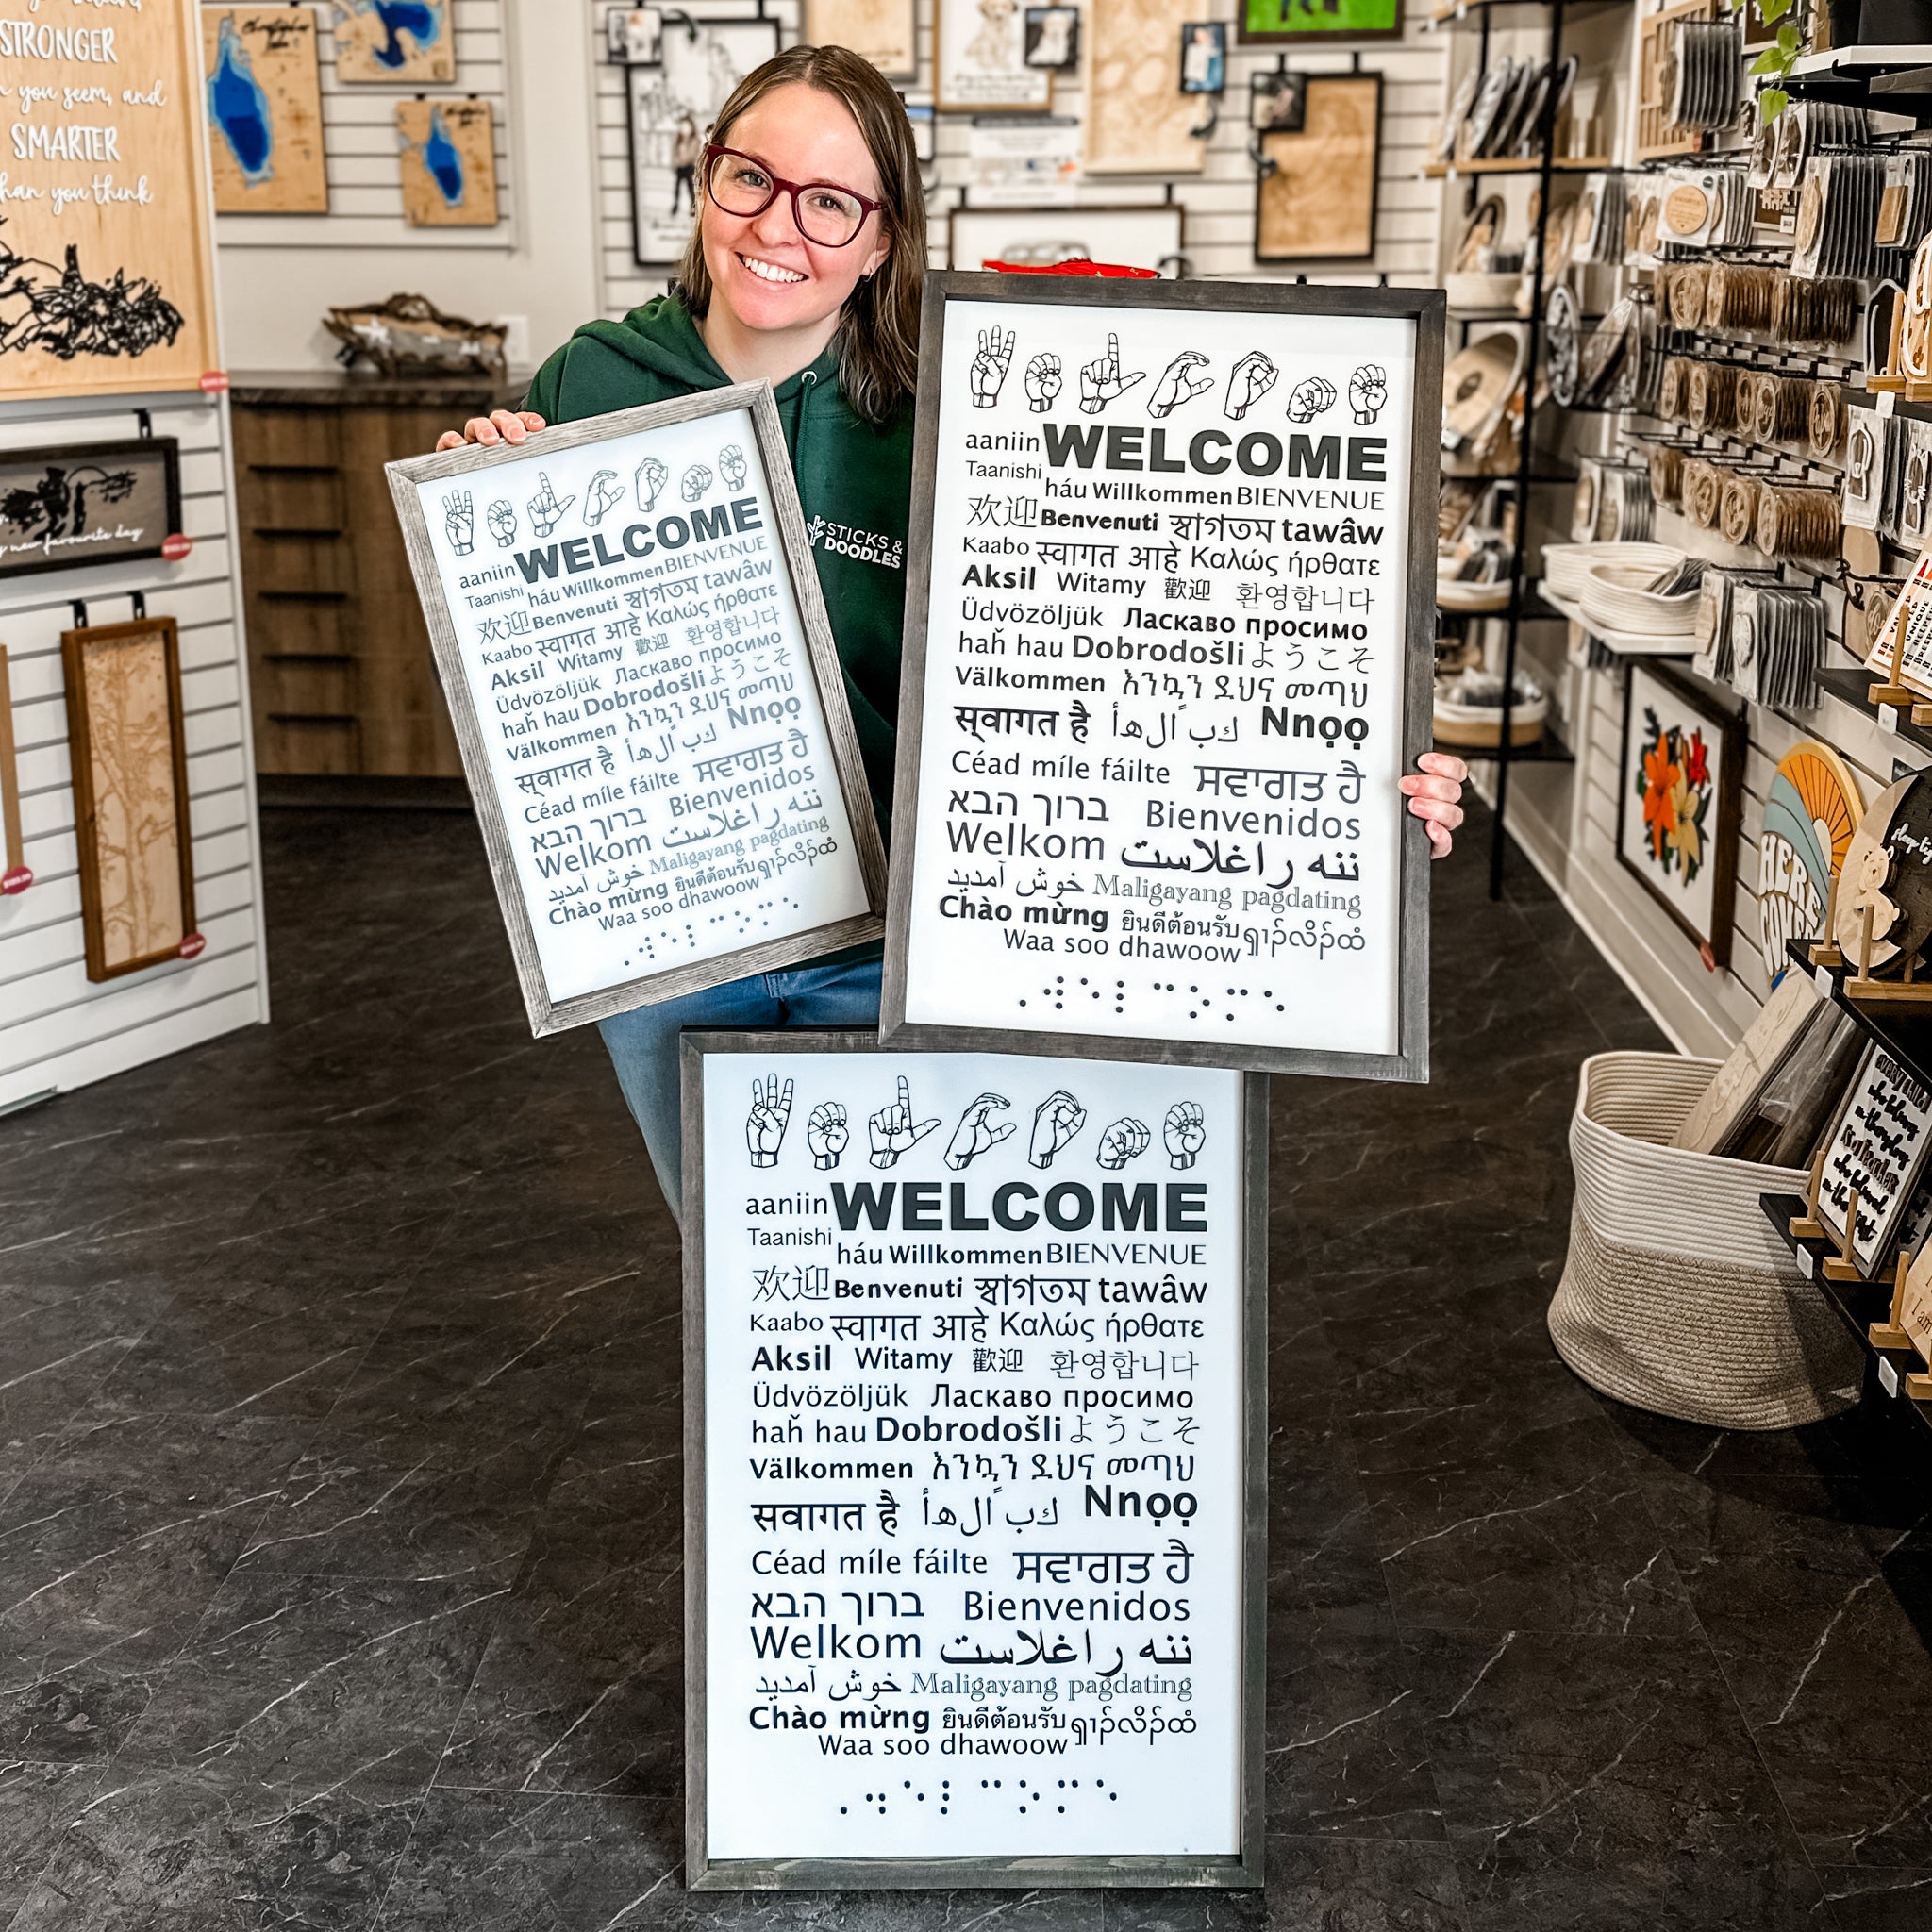 STRONGER
you seem, and
SMARTER
than you think
new favourite day
STICKS &
DOODLES
aaniin WELCOME
Taanishi háu Willkommen BIENVENUE
欢迎 Benvenuti স্বাগতম tawâw
Kaabo स्वागत आहे Καλώς ήρθατε
Aksil Witamy 歡迎 환영합니다
Üdvözöljük Ласкаво просимо
haȟ hau Dobrodošli ようこそ
Välkommen እንኳን ደህና መጣህ
स्वागत है كب ًالهأ Nnọọ
Céad míle fáilte ਸਵਾਗਤ ਹੈ
ברוך הבא Bienvenidos
Welkom ننه راغلاست
خوش آمدید Maligayang pagdating
Chào mừng ยินดีต้อนรับ ရှာဉ်လိဉ်ထံ
Waa soo dhawoow
aaniin WELCOME
Taanishi háu Willkommen BIENVENUE
欢迎 Benvenuti স্বাগতম tawâw
Kaabo स्वागत आहे Καλώς ήρθατε
Aksil Witamy 歡迎 환영합니다
Üdvözöljük Ласкаво просимо
haȟ hau Dobrodošli ようこそ
Välkommen እንኳን ደህና መጣህ
स्वागत है كب ًالهأ Nnọọ
Céad míle fáilte ਸਵਾਗਤ ਹੈ
ברוך הבא Bienvenidos
Welkom ننه راغلاست
خوش آمدید Maligayang pagdating
Chào mừng ยินดีต้อนรับ ရှာဉ်လိဉ်ထံ
Waa soo dhawoow
aaniin WELCOME
Taanishi háu Willkommen BIENVENUE
欢迎 Benvenuti স্বাগতম tawâw
Kaabo स्वागत आहे Καλώς ήρθατε
Aksil Witamy 歡迎 환영합니다
Üdvözöljük Ласкаво просимо
haȟ hau Dobrodošli ようこそ
Välkommen እንኳን ደህና መጣህ
सवागत है كب ًالهأ Nnọọ
Céad míle fáilte ਸਵਾਗਤ ਹੈ
ברוך הבא Bienvenidos
Welkom ننه راغلاست
خوش آمدید Maligayang pagdating
Chào mừng ยินดีต้อนรับ ရှာဉ်လိဉ်ထံ
Waa soo dhawoow
HERE